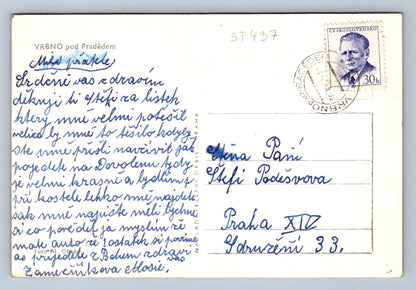 VRBNO pod Pradědem
Milá přátele
Srdečně vás zdravím
děkuji ti Štefi za lístek
který mně velmi potěšil
velice by mně to těšilo kdyby
ste mně přišli navštívit jak
pojedete na Dovolenu tydy
je velmi krasně a bydlím
při kostele lehko mně najdete
sak mně napište měli bychme
si co povědet ja myslim že
mate auto že ostatek si povíme
až přijedete z Bohem zdraví vás
Zamečnikova
ST 437
ČESKOSLOVENSKO
30h
VRBNO
Paní
Štefi Podešvova
Praha XIV
Sdružení 33.